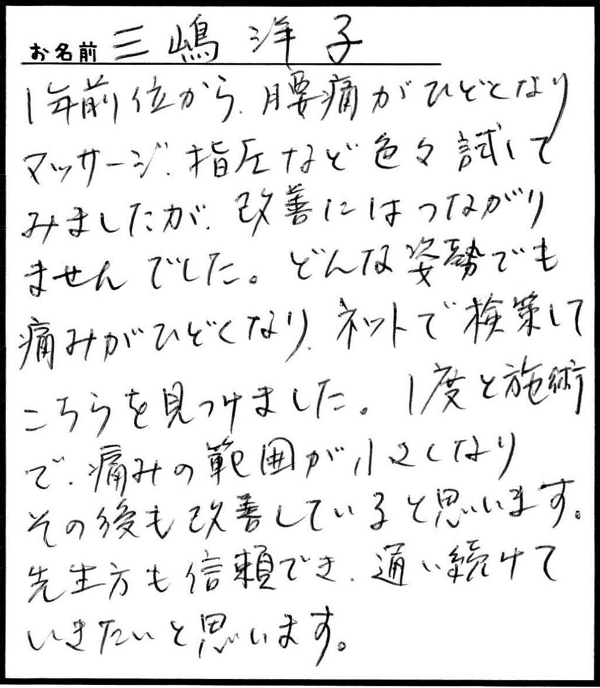 お名前 三嶋 洋子
1年前位から、腰痛がひどくなり
マッサージ、指圧など色々試して
みましたが、改善にはつながり
ませんでした。どんな姿勢でも
痛みがひどくなり、ネットで検策して
こちらを見つけました。1度と施術
で、痛みの範囲が小さくなり
その後も改善していると思います。
先生方も信頼でき、通い続けて
いきたいと思います。